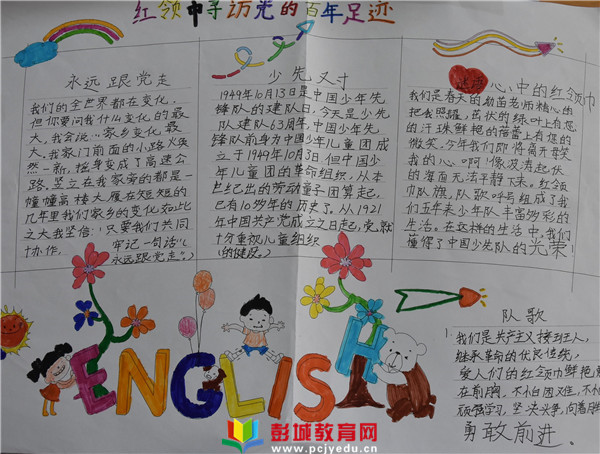 红领巾寻访党的百年足迹
永远跟党走
我们的全世界都在变化,
但你要问我什么变化的最
大,我会说:家乡变化最
大,我家门前面的小路火焕
然一新,摇身变成了高速公
路,竖立在我家旁的都是一
幢幢高楼大厦在短短的
几年里我们家乡的变化如此
之大我坚信:“只要我们共同
协作。牢记一句话:“
永远跟党走。”
少先又寸
1949年10月13日是中国少年先
锋队的建队日,今天是少先
队建队63周年,中国少年先
锋队前身为中国少年儿童团成
立于1949年10月3但中国少
年儿童团的革命组织,从本
世纪出的劳动童子团算起,
已有10岁年的历史了。从1921
年中国共产党成立之日起,党就
十分重视儿童组织
的健设。
心中的红领巾
我们是春天的幼苗老师精心的
把我照耀,茁状的绿叶上有您
的汗珠鲜艳的蓓蕾上有您的
微笑,今年我们即将离开母笑
我的心啊!像波涛起伏
的海面无法平静下来。红领
巾队旗,队歌呼号组成了我
们五年来少年队丰富多彩的
生活。在这样的生活中,我们
懂得了中国少先队的光荣!
队歌
我们是共产主义接班人,
继承革命的优良传统,
爱人们的红领巾鲜艳
在前胸,不怕困难,不怕
顽强学习,坚决斗争,向着胜
勇敢前进.
ENGLISH
彭城教育网
www.pcjyedu.cn